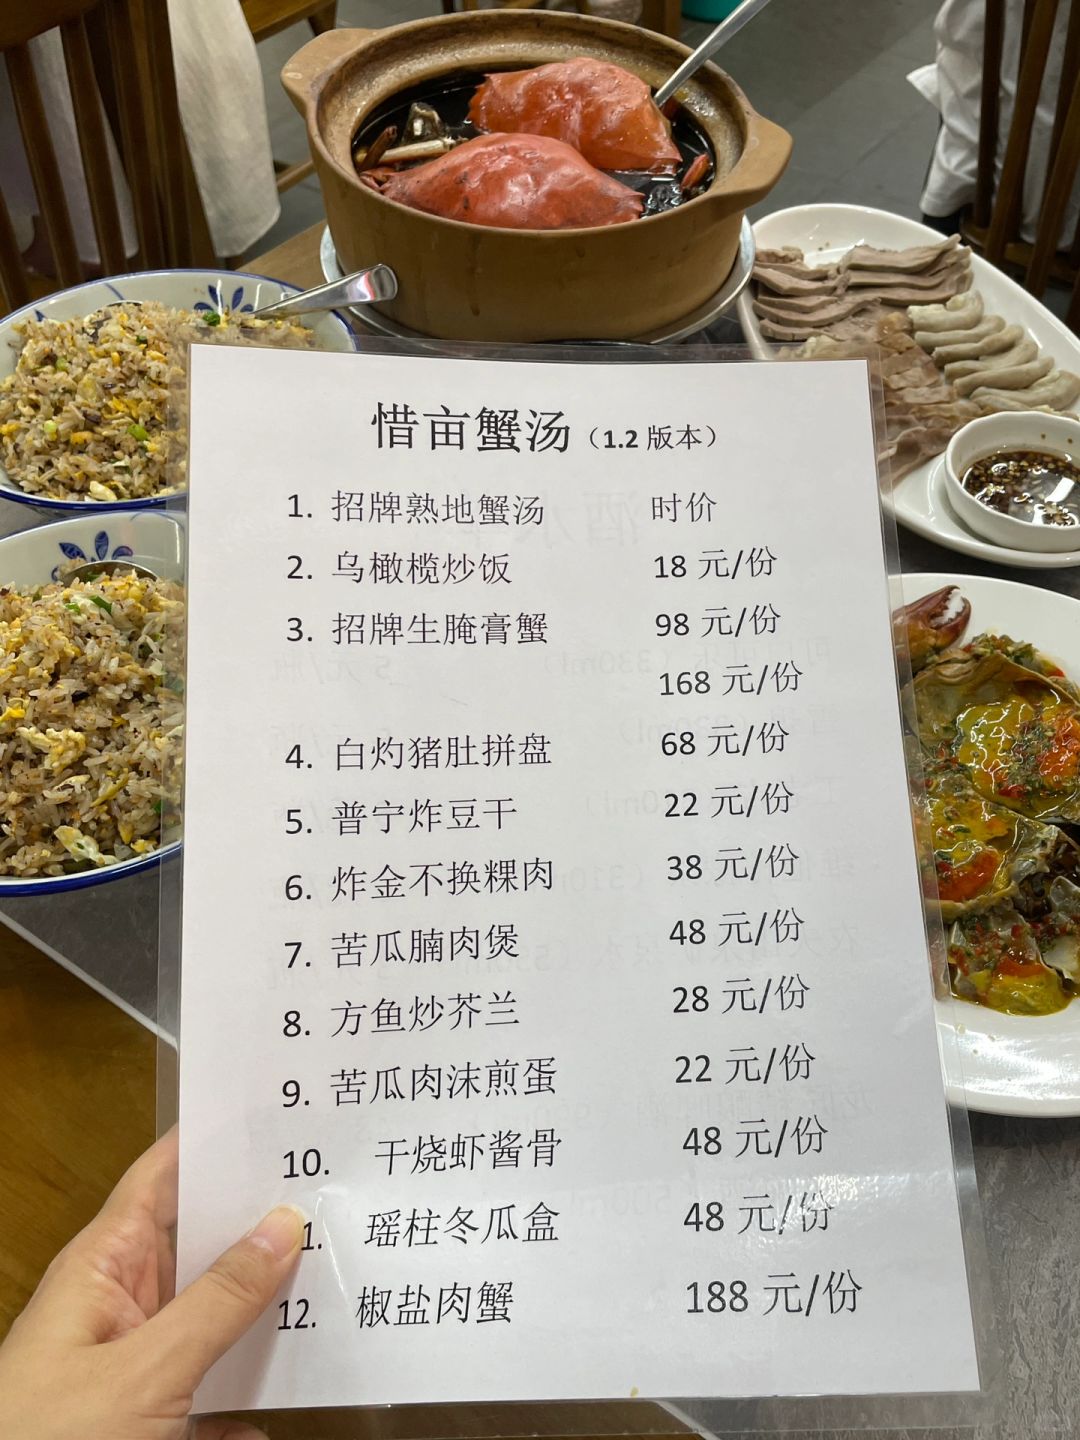 惜亩蟹汤（1.2 版本）
1. 招牌熟地蟹汤 时价
2. 乌橄榄炒饭 18 元/份
3. 招牌生腌膏蟹 98 元/份
168 元/份
4. 白灼猪肚拼盘 68 元/份
5. 普宁炸豆干 22 元/份
6. 炸金不换粿肉 38 元/份
7. 苦瓜腩肉煲 48 元/份
8. 方鱼炒芥兰 28 元/份
9. 苦瓜肉沫煎蛋 22 元/份
10. 干烧虾酱骨 48 元/份
1. 瑶柱冬瓜盒 48 元/份
12. 椒盐肉蟹 188 元/份